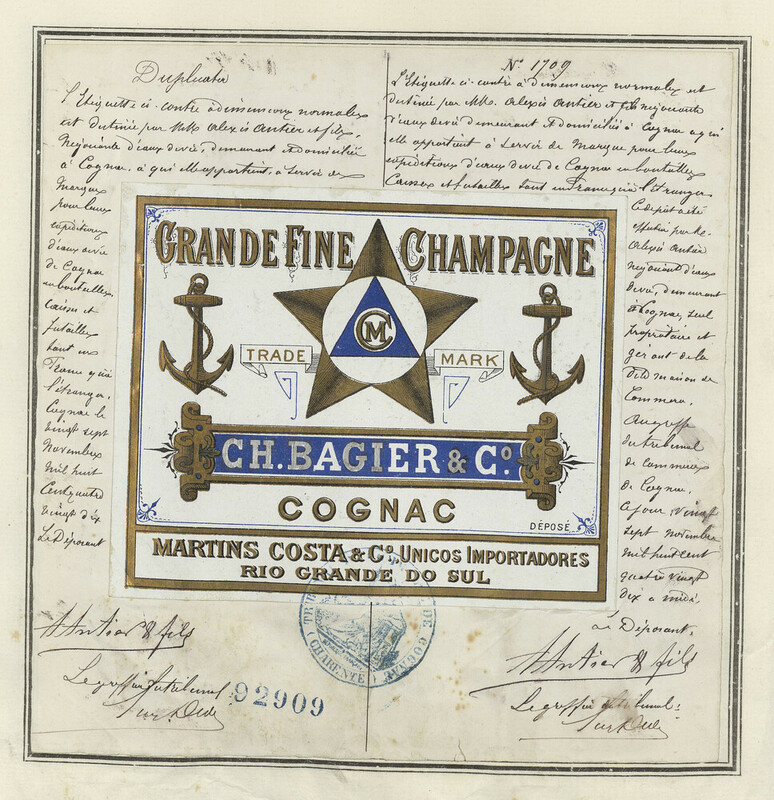 Duplicata
l'Etiquette ci-contre à dimensions normales
est destinée par MMrs Alexis Antier et fils,
Négociants d'eaux de vie, demeurant et domiciliés
à Cognac, à qui elle appartient, à servir de
Marque
pour leurs
expéditions
d'eaux de vie
de Cognac
en bouteilles
Caisses et
futailles
tant en
France qu'à
l'étranger.
Cognac le
vingt sept
Novembre
mil huit
Cent quatre
vingt dix
Le Déposant
A Antier & fils
Le greffier du tribunal
92909
No 1709
L'Etiquette ci-contre à dimensions normales est
destinée par MMrs Alexis Antier et fils négociants
d'eaux de vie demeurant et domiciliés à Cognac à qui
elle appartient à servir de Marque pour leurs
expéditions d'eaux de vie de Cognac en bouteilles
Caisses et futailles tant en France qu'à l'étranger
Ce dépôt a été
effectué par Mr
Alexis Antier
négociant d'eaux
de vie, demeurant
à Cognac, seul
propriétaire et
gérant de la
dite maison de
Commerce.
Au greffe
du tribunal
de Commerce
de Cognac,
ce jour vingt
sept novembre
mil huit cent
quatre vingt
dix à midi.
Le Déposant,
A Antier & fils
Le greffier du tribunal:
GRANDE FINE CHAMPAGNE
CM
TRADE MARK
CH. BAGIER & Co.
COGNAC
DÉPOSÉ
MARTINS COSTA & Co. UNICOS IMPORTADORES
RIO GRANDE DO SUL
(CHARENTE)